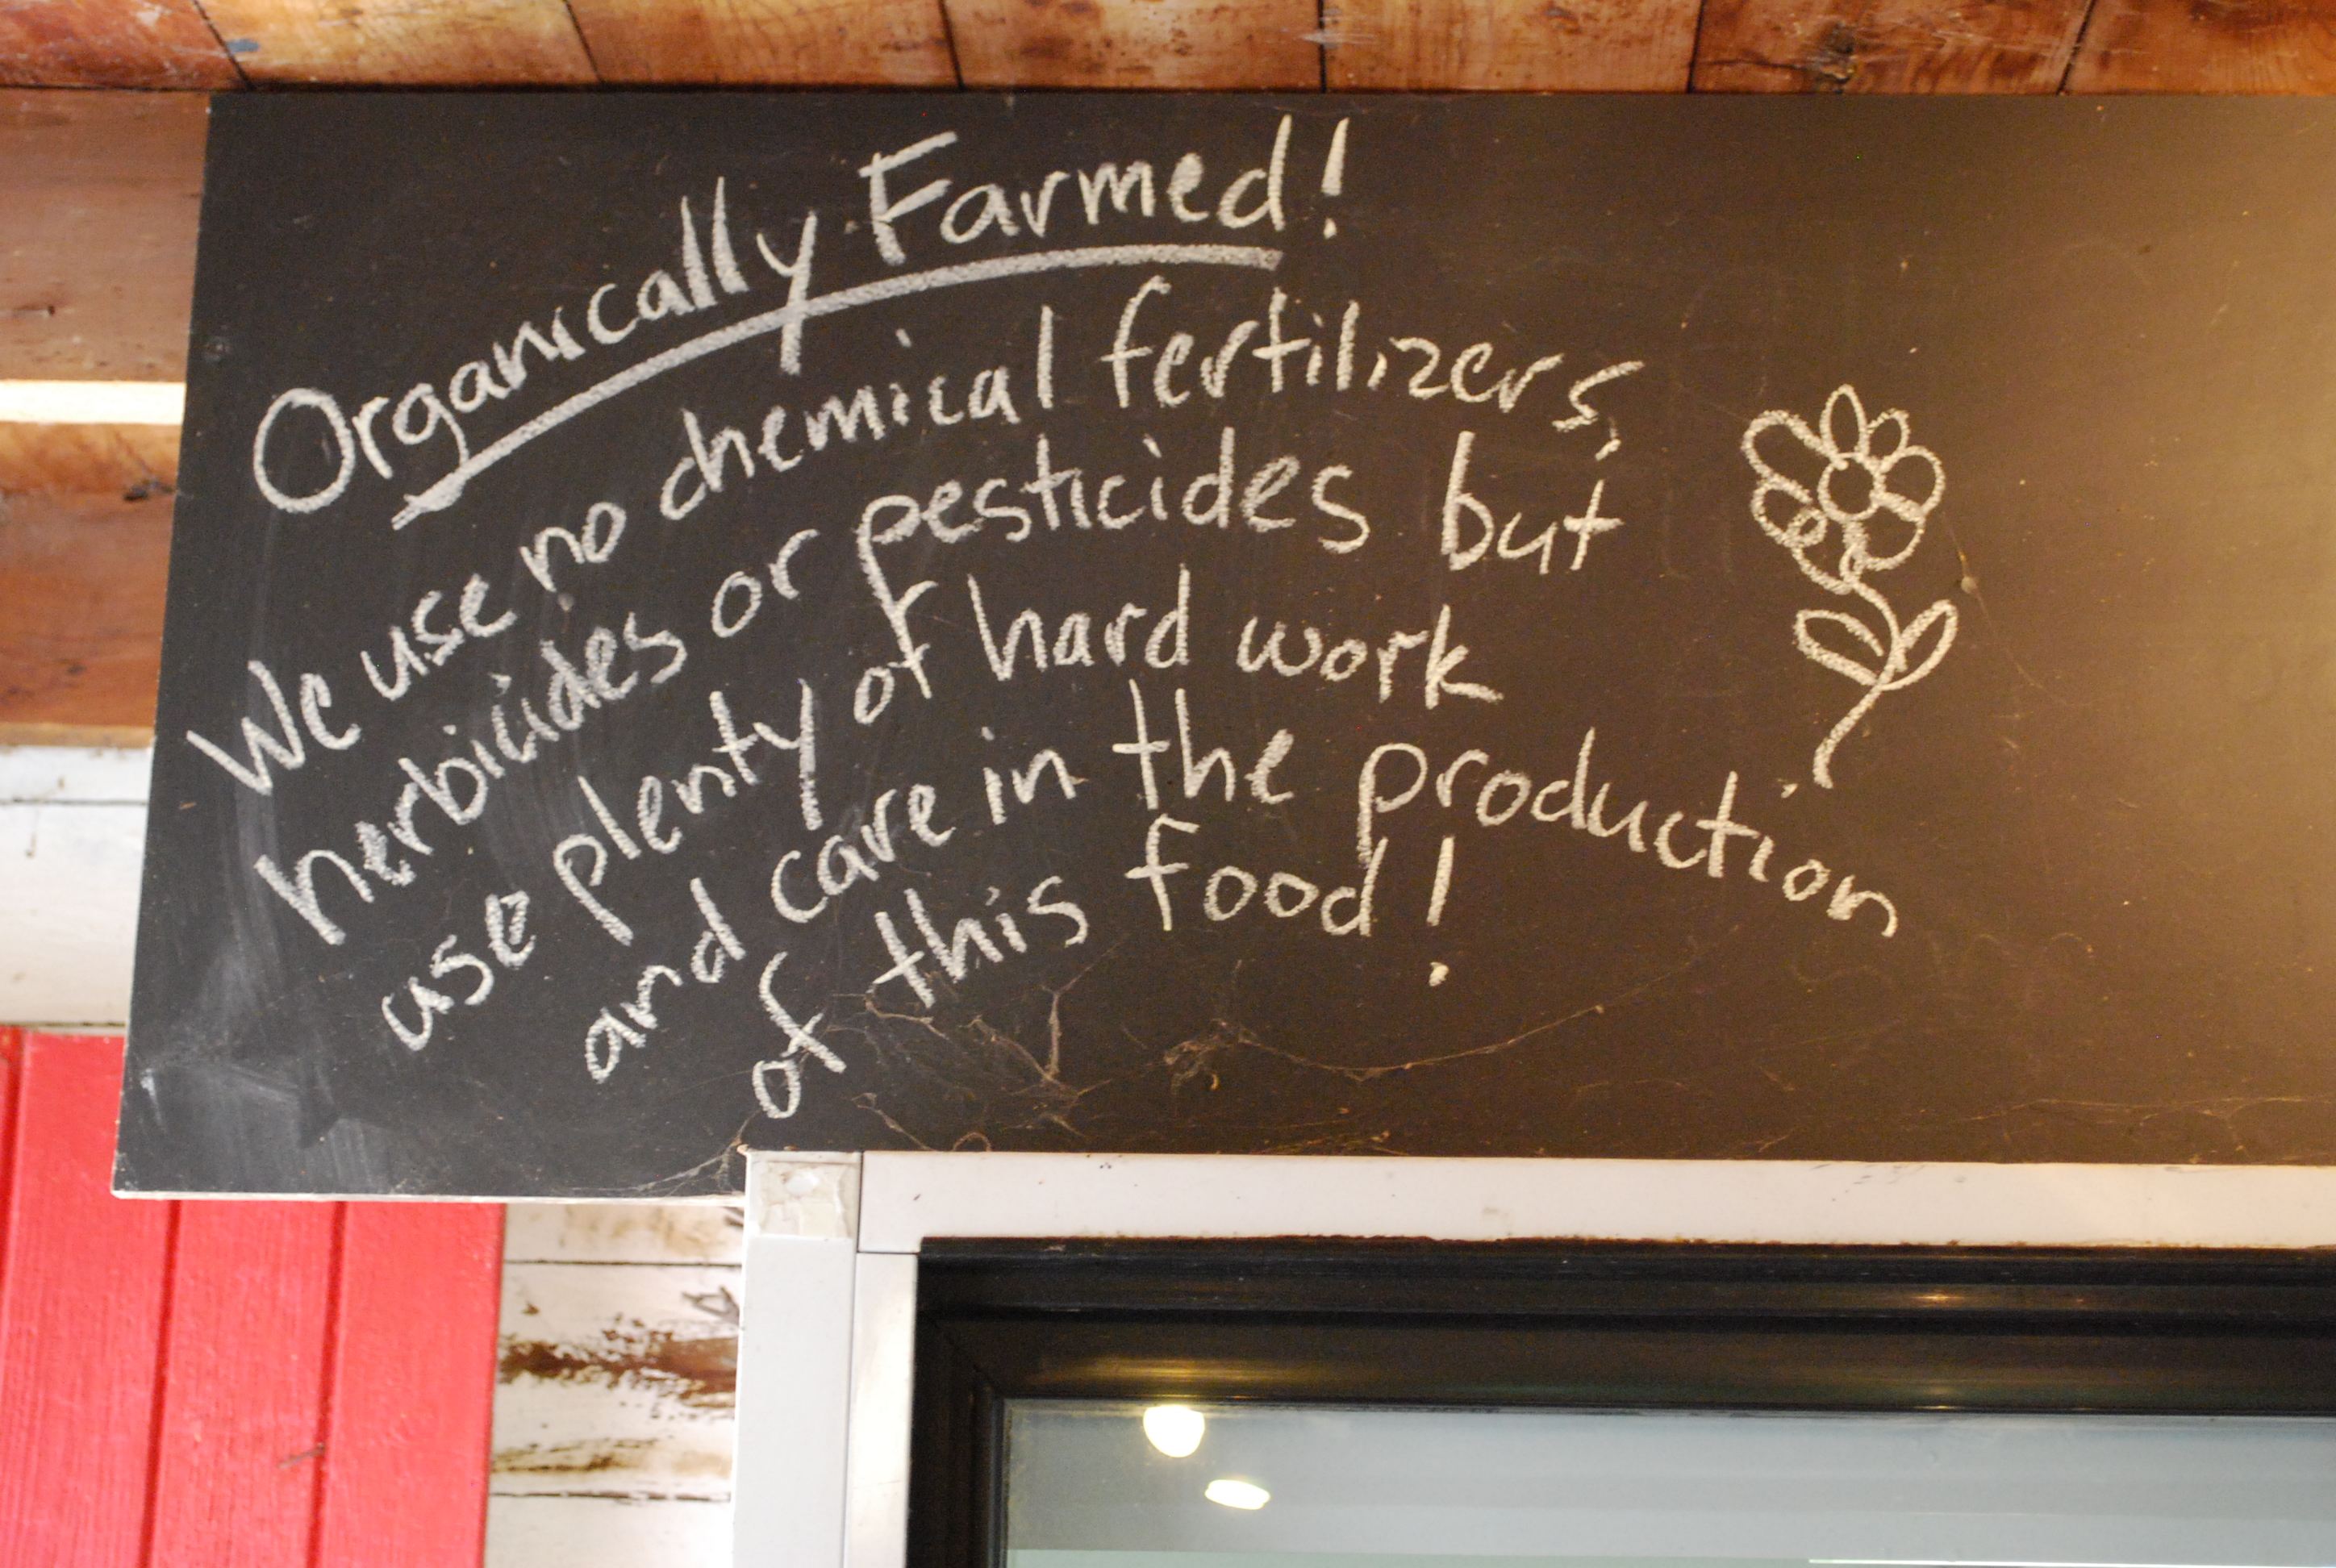 Organically Farmed!
We use no chemical fertilizers,
herbicides or pesticides but
use plenty of hard work
and care in the production
of this food!